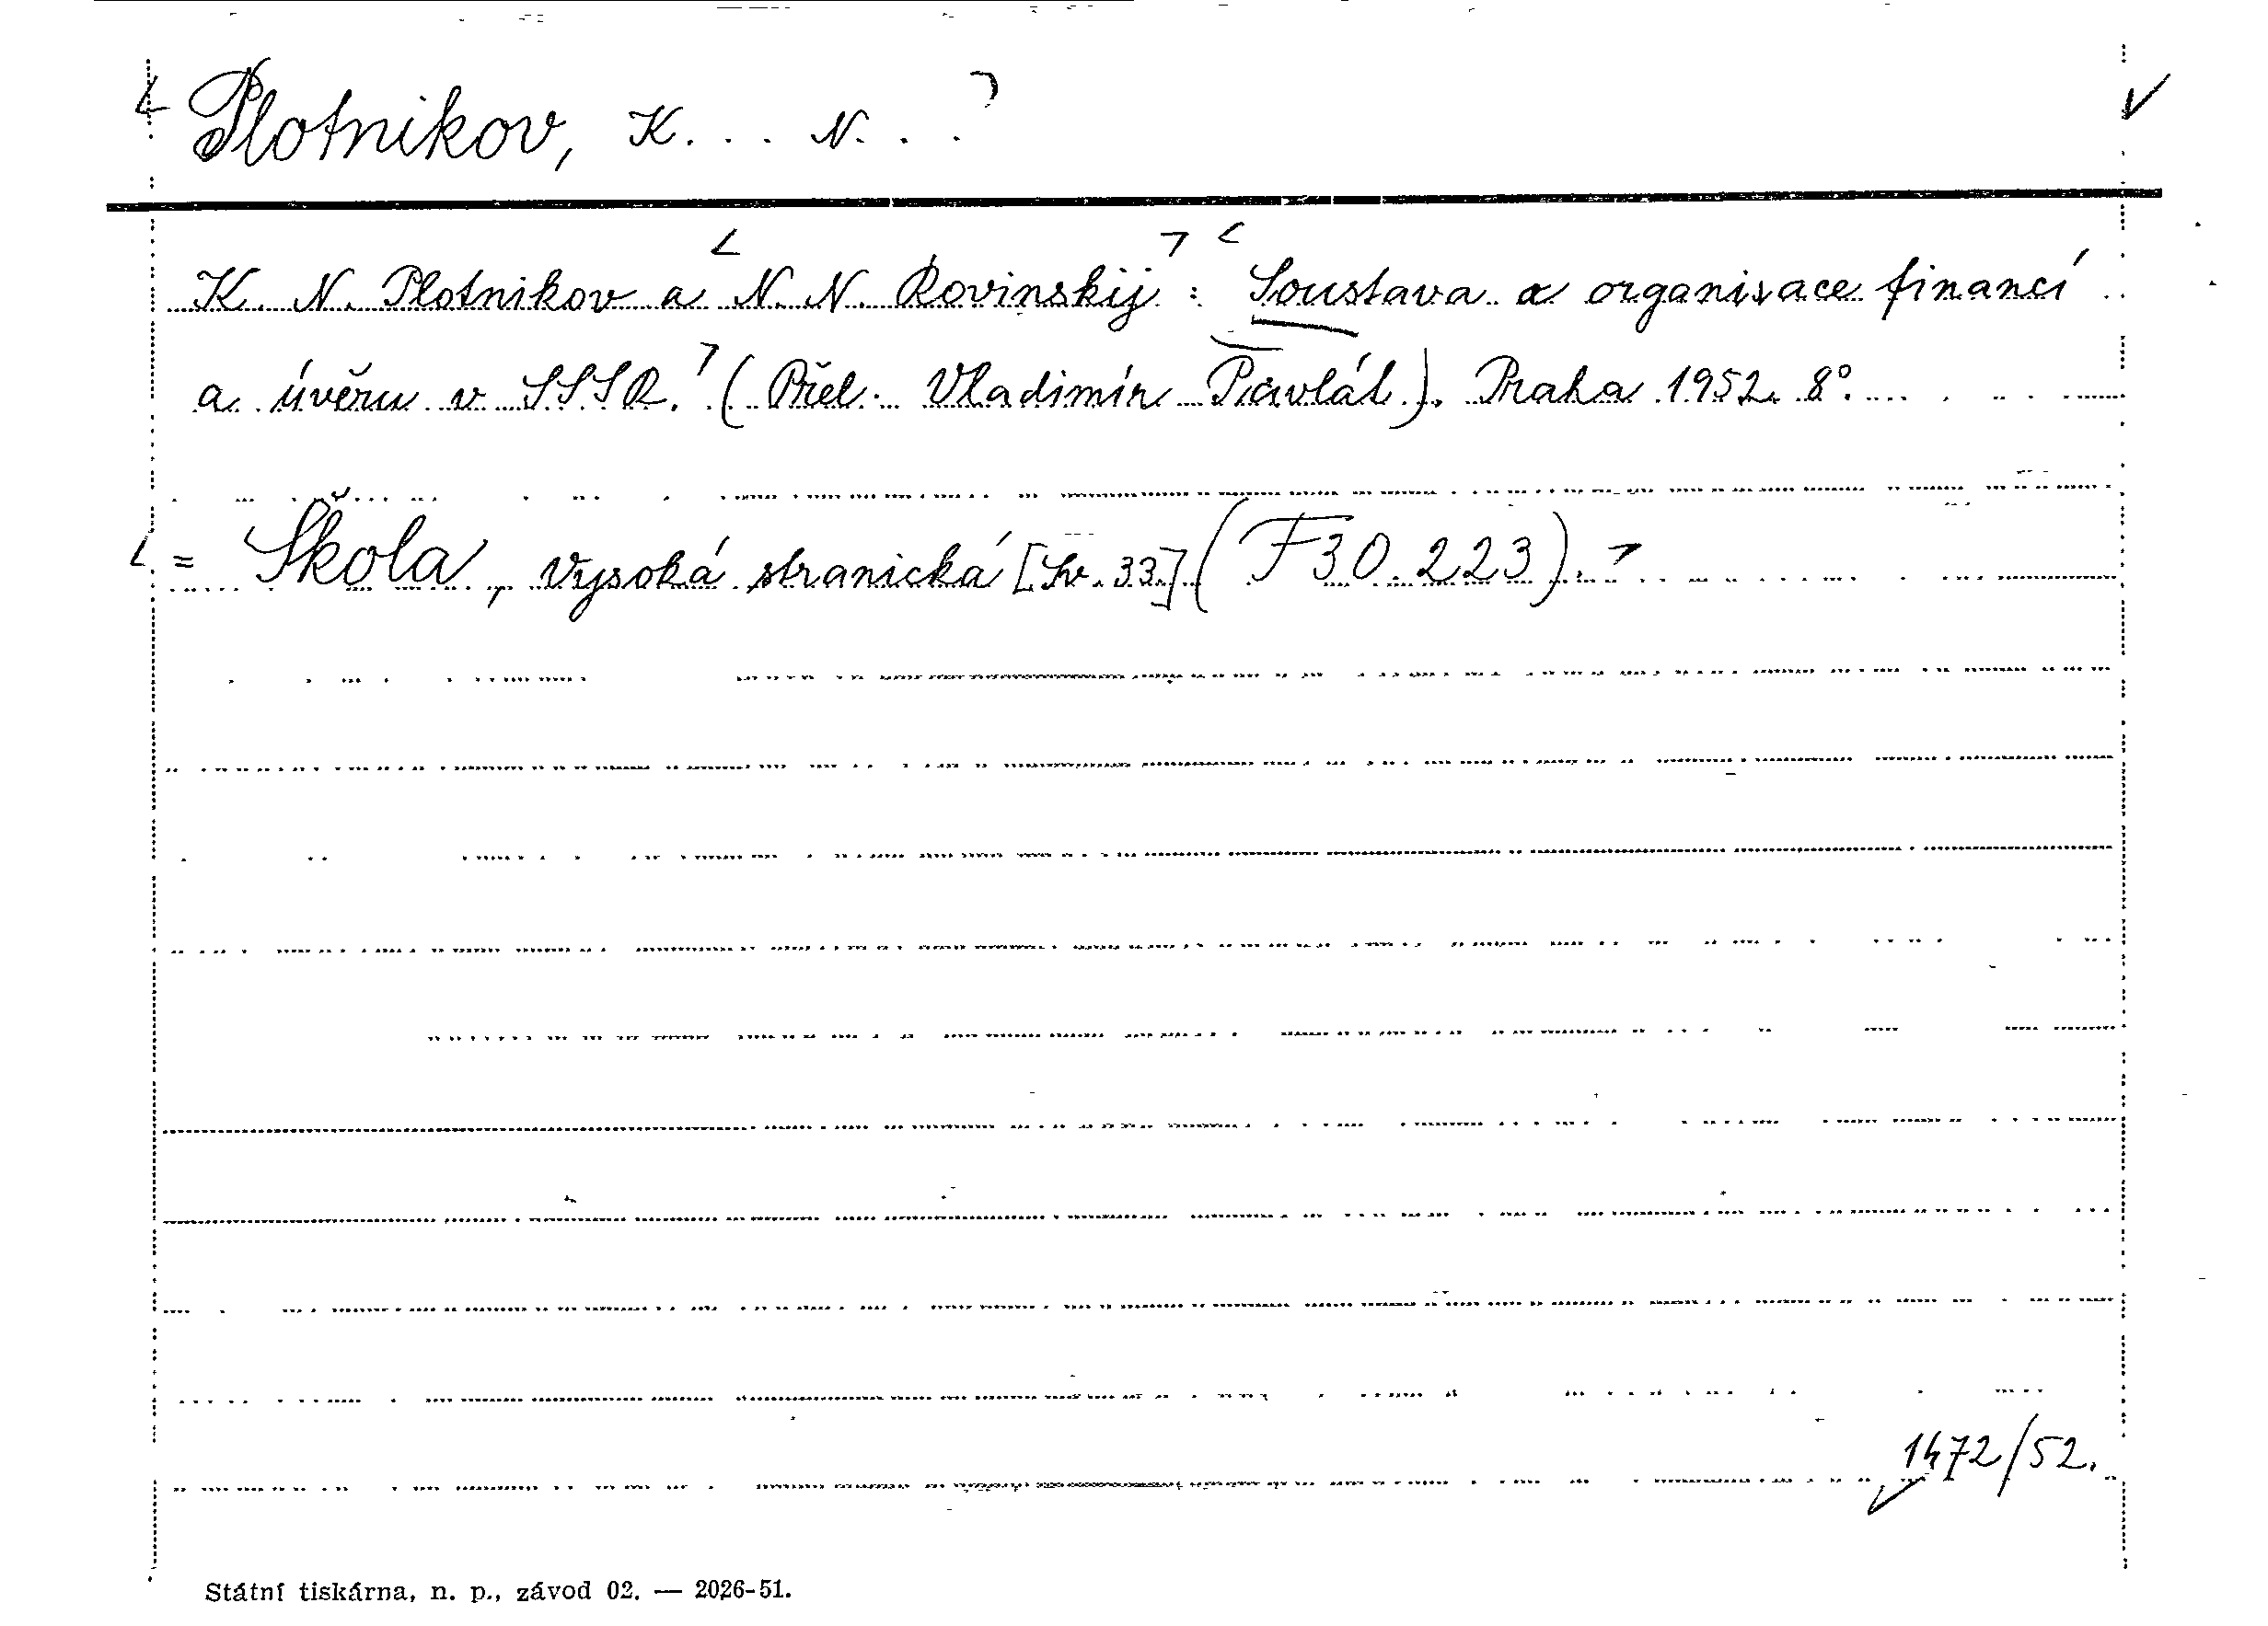 Plotnikov, K... N...
K. N. Plotnikov a N. N. Rovinskij: Soustava a organisace financí
a úvěru v SSSR. (Přel. Vladimír Pavlát). Praha 1952. 8°.
= Škola, vysoká stranická [Sv. 33] (F 30.223).
1472/52.
Státní tiskárna, n. p., závod 02. — 2026-51.